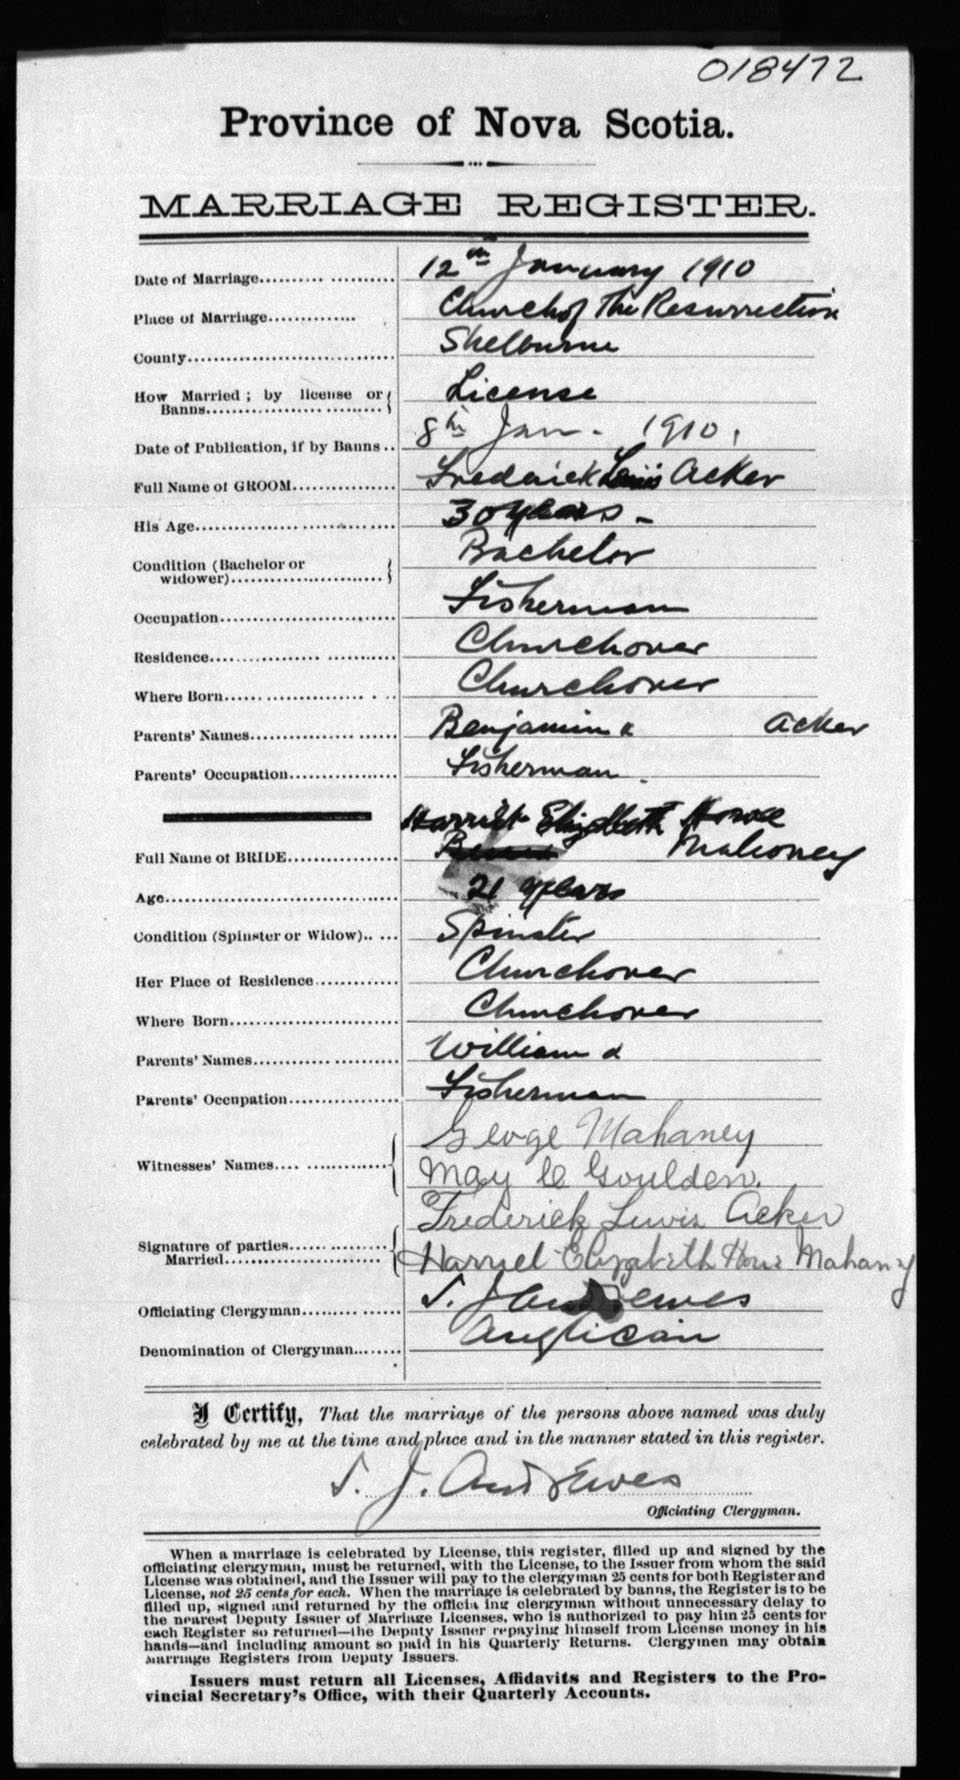 018472
Province of Nova Scotia.
MARRIAGE REGISTER.
Date of Marriage 12th January 1910
Place of Marriage Church of The Resurrection
County Shelburne
How Married; by license or Banns License
Date of Publication, if by Banns 8th Jan. 1910.
Full Name of GROOM Frederick Lewis Acker
His Age 30 years -
Condition (Bachelor or widower) Bachelor
Occupation Fisherman
Residence Churchover
Where Born Churchover
Parents' Names Benjamin & Acker
Parents' Occupation Fisherman
Harriet Elizabeth Howe
Full Name of BRIDE Mahoney
Age 21 years
Condition (Spinster or Widow) Spinster
Her Place of Residence Churchover
Where Born Churchover
Parents' Names William &
Parents' Occupation Fisherman
Witnesses' Names George Mahaney
May Goulden.
Signature of parties Married Frederick Lewis Acker
Harriet Elizabeth Howe Mahaney
Officiating Clergyman S. J. Andrewes
Denomination of Clergyman Anglican
I Certify, That the marriage of the persons above named was duly
celebrated by me at the time and place and in the manner stated in this register.
S. J. Andrewes
Officiating Clergyman.
When a marriage is celebrated by License, this register, filled up and signed by the
officiating clergyman, must be returned, with the License, to the Issuer from whom the said
License was obtained, and the Issuer will pay to the clergyman 25 cents for both Register and
License, not 25 cents for each. When the marriage is celebrated by banns, the Register is to be
filled up, signed and returned by the officia ing clergyman without unnecessary delay to
the nearest Deputy Issuer of Marriage Licenses, who is authorized to pay him 25 cents for
each Register so returned—the Deputy Issuer repaying himself from License money in his
hands—and including amount so paid in his Quarterly Returns. Clergymen may obtain
Marriage Registers from Deputy Issuers.
Issuers must return all Licenses, Affidavits and Registers to the Pro-
vincial Secretary's Office, with their Quarterly Accounts.